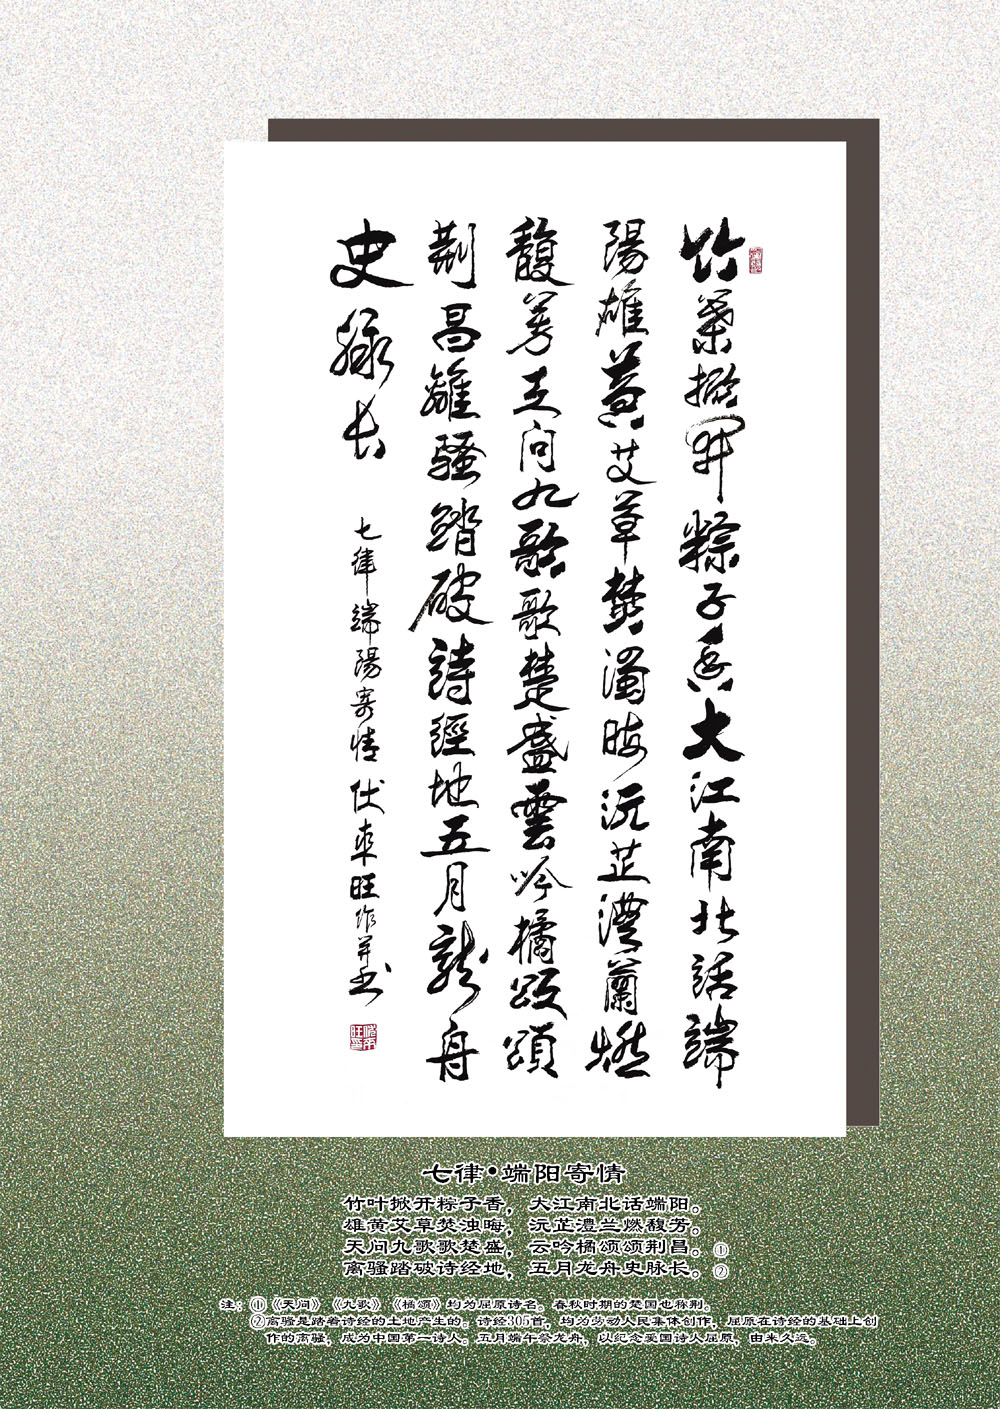 竹葉掀開粽子香大江南北話端
陽雄黄艾草焚濁晦沅芷澧蘭燃
馥芳天问九歌歌楚盛雲吟橘頌頌
荆昌離騷踏破詩經地五月龍舟
史脉长
七律端陽寄情 伏来旺作并书
七律•端阳寄情
竹叶掀开粽子香，大江南北话端阳。
雄黄艾草焚浊晦，沅芷澧兰燃馥芳。
天问九歌歌楚盛，云吟橘颂颂荆昌。①
离骚踏破诗经地，五月龙舟史脉长。②
注：①《天问》《九歌》《橘颂》均为屈原诗名。春秋时期的楚国也称荆。
②离骚是踏着诗经的土地产生的。诗经305首，均为劳动人民集体创作，屈原在诗经的基础上创
作的离骚，成为中国第一诗人。五月端午祭龙舟，以纪念爱国诗人屈原，由来久远。